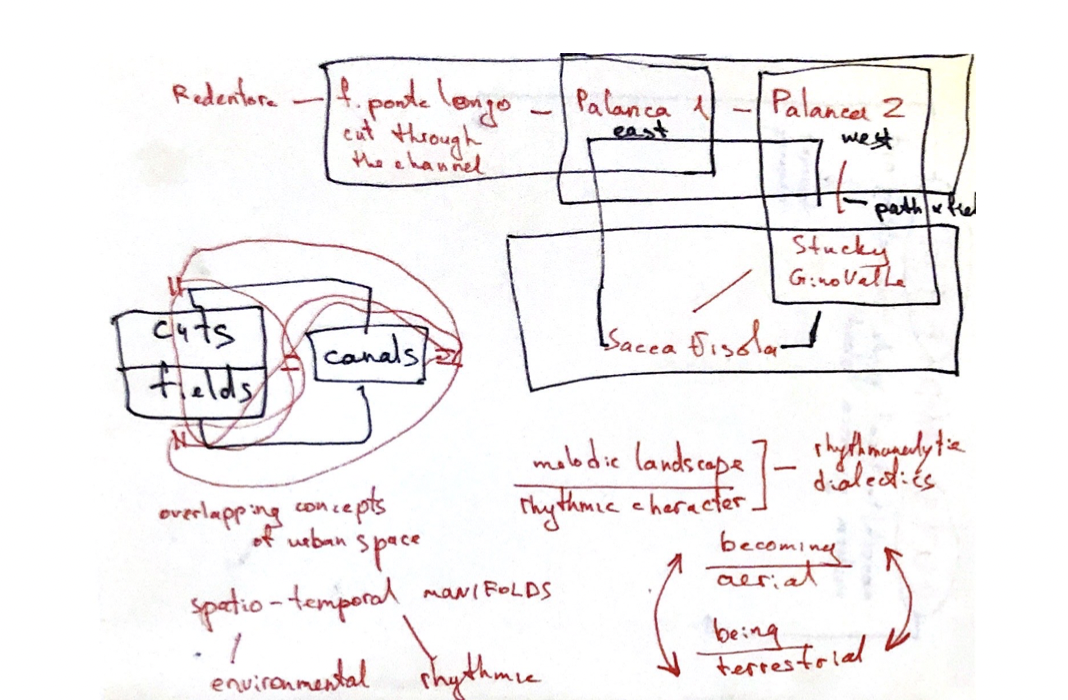 Redentore — f. ponte longo — Palanca 1 — Palanca 2
cut through
the channel
east
west
path x
Stucky
Gino Valle
Sacca Fisola
cuts
fields
canals
overlapping concepts
of urban space
melodic landscape
rhythmic character
rhythmanalytic
dialectics
becoming
aerial
being
terrestrial
spatio-temporal MANIFOLDS
environmental rhythmic